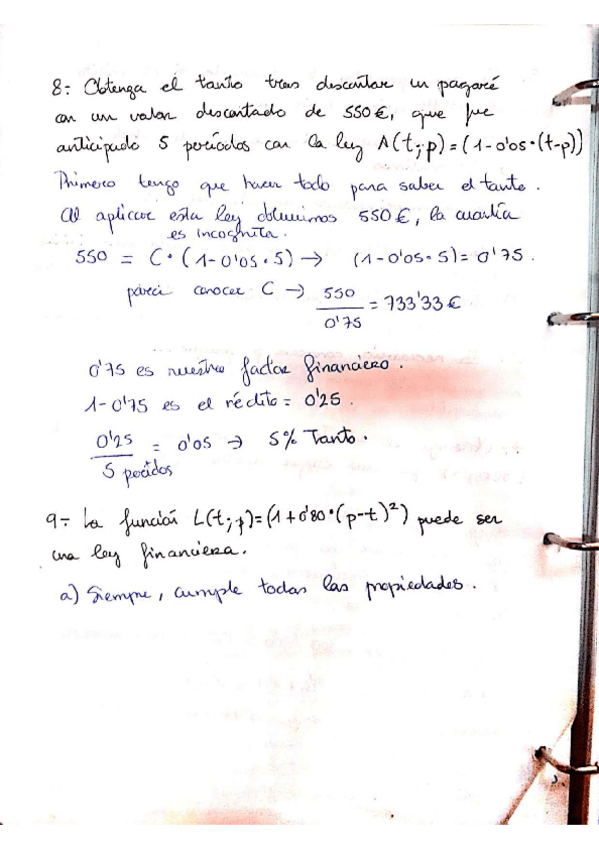 8.- Obtenga el tanto tras descontar un pagaré
con un valor descontado de 550€, que fue
anticipado 5 períodos con la ley A(t;p)=(1-0'05·(t-p))
Primero tengo que hacer todo para saber el tanto.
Al aplicar esta ley obtuvimos 550€, la cuantía
es incognita.
550 = C·(1-0'05·5) → (1-0'05·5)= 0'75.
para conocer C → 550/0'75 = 733'33€
0'75 es nuestro factor financiero.
1-0'75 es el rédito = 0'25.
0'25/5 periodos = 0'05 → 5% Tanto.
9.- La función L(t;p)=(1+0'80·(p-t)²) puede ser
una ley financiera.
a) Siempre, cumple todas las propiedades.